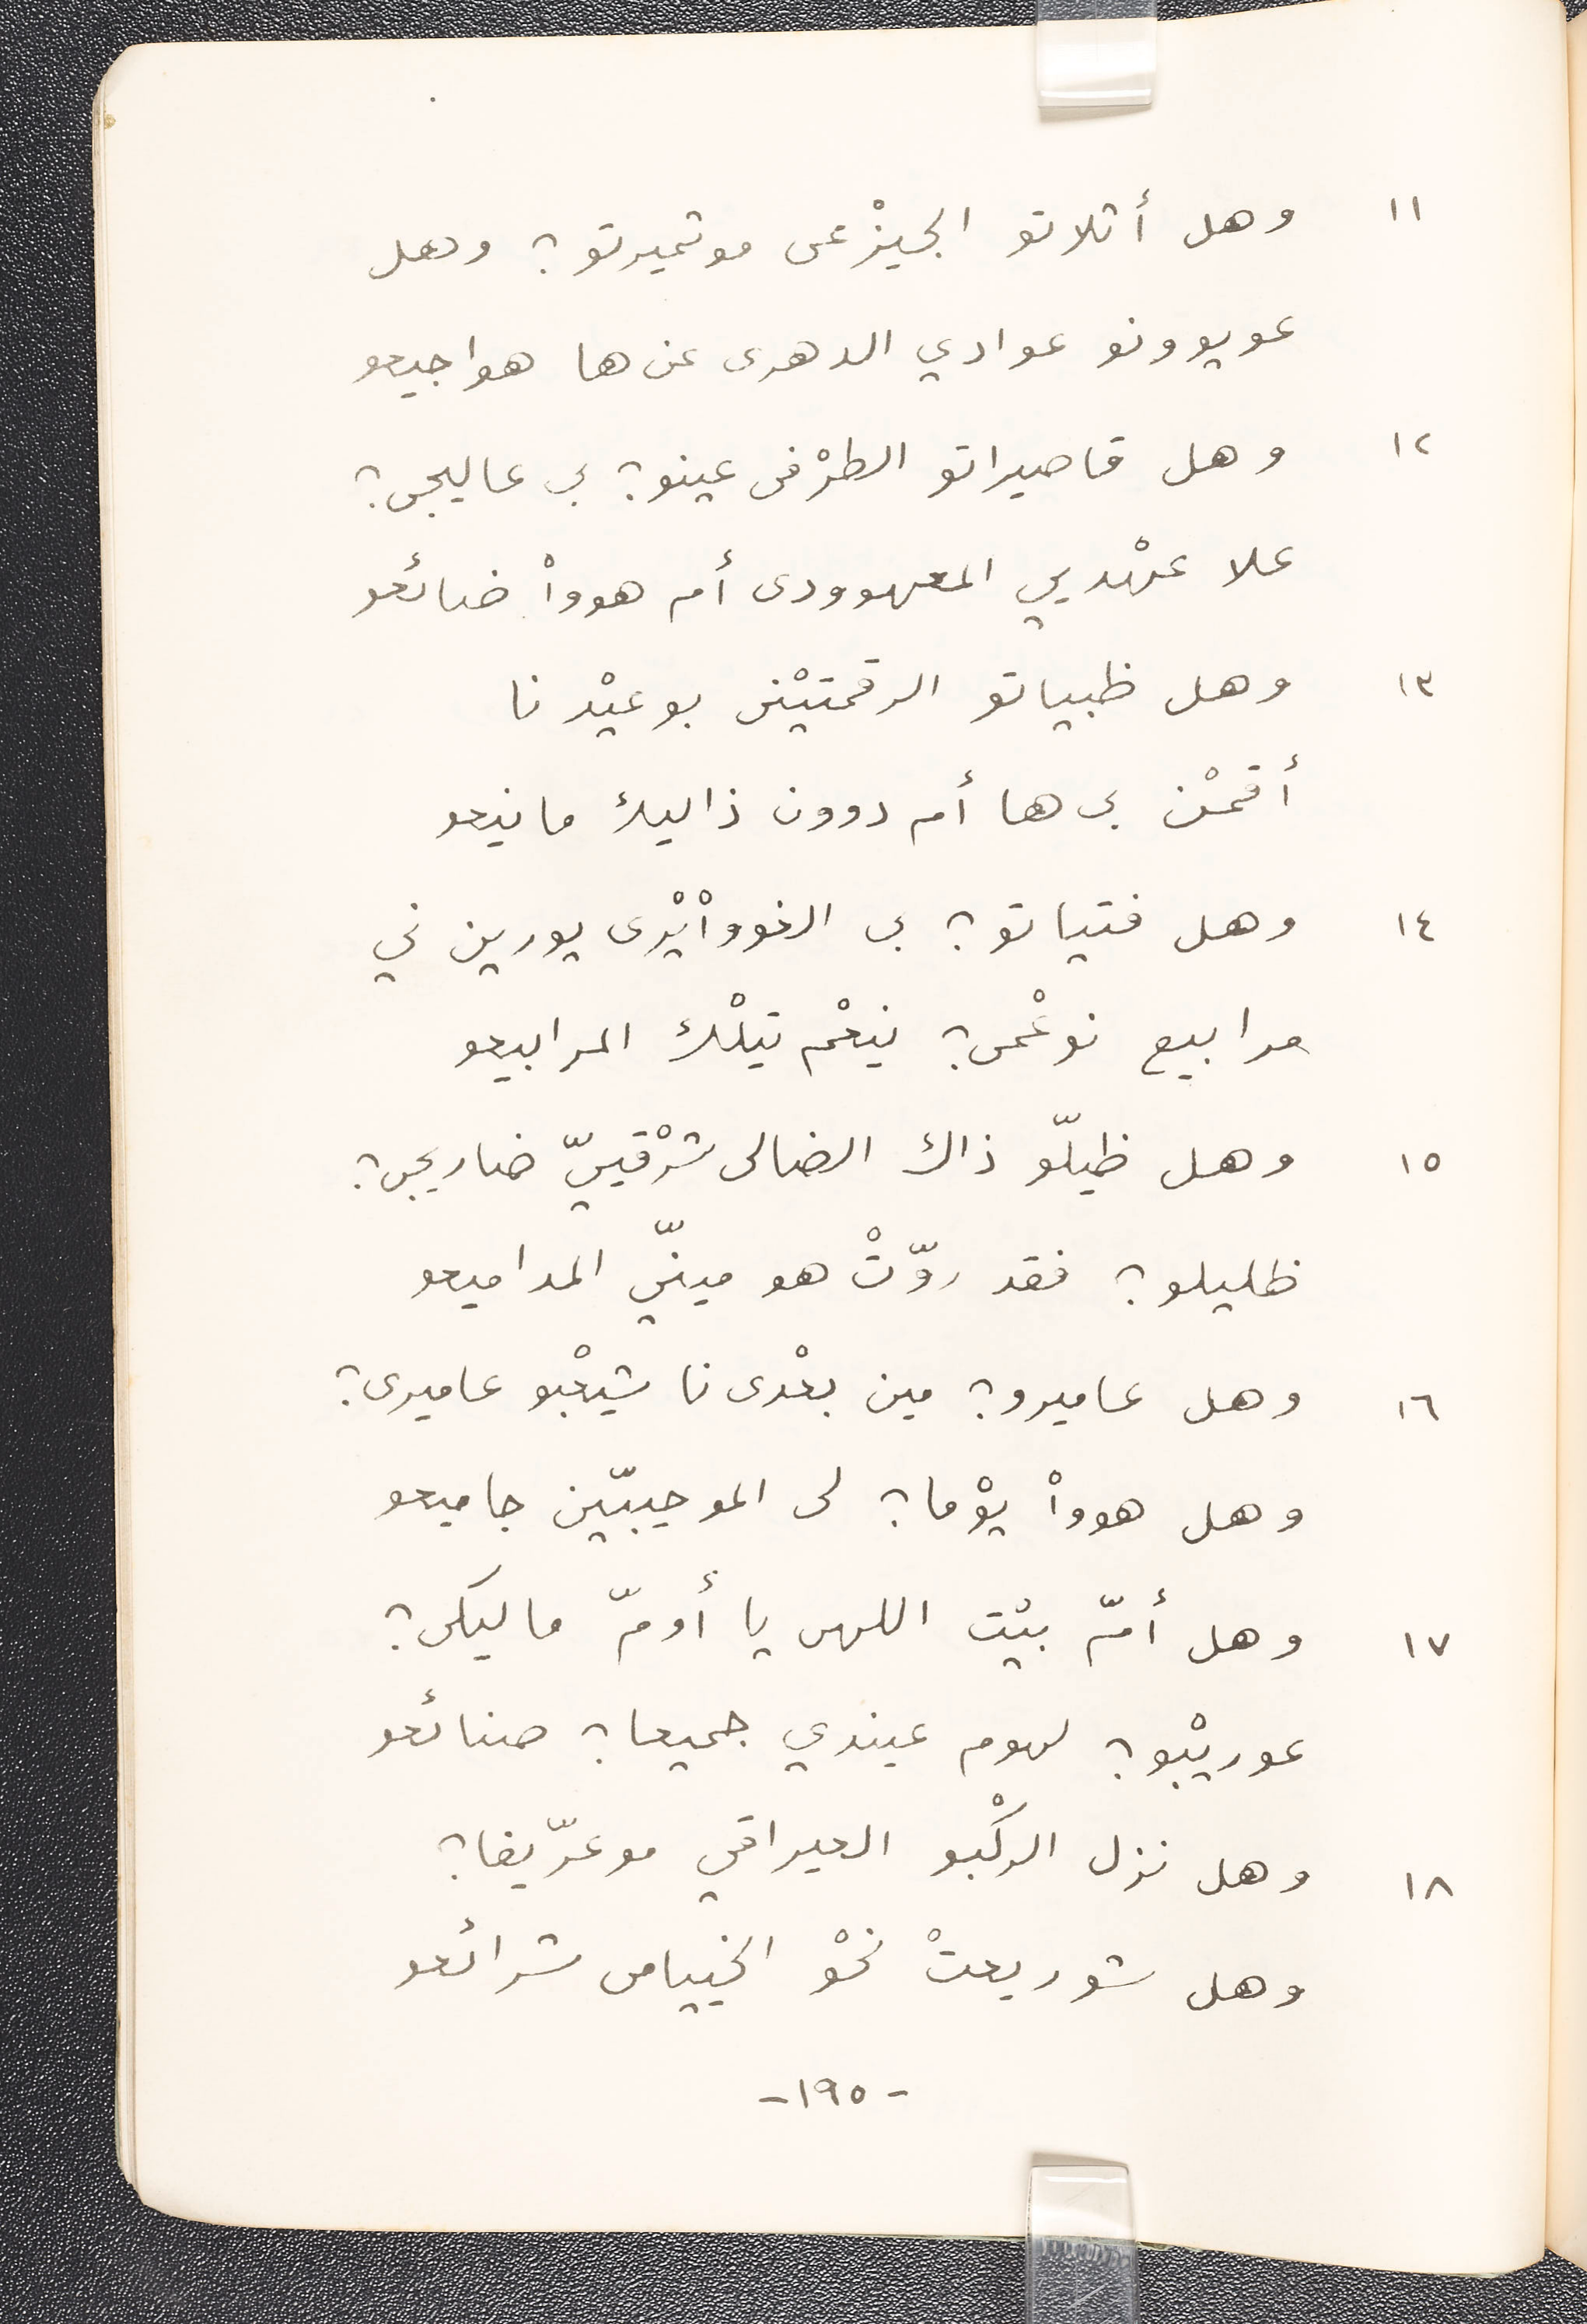 ١١ وهل أثلاتو الجيزْعى موثميرتو؟ وهل
عويوونو عوادي الدهرى عن ها هواجيعو
١٢ وهل قاصيراتو الطرْفى عينو؟ بى عاليجى؟
علا عهْديي المعهوودى أم هوواْ ضائعو
١٣ وهل ظبياتو الرقمتيْنى بوعيْد نا
أقمْن بى ها أم دوون ذاليك مانيعو
١٤ وهل فتياتو؟ بى الغوواْيْرى يورين ني
مرابيع نوعْمى؟ نيعْم تيلْك المرابيعو
١٥ وهل ظيلّو ذاك الضالى شرْقييّ ضاريجى؟
ظليلو؟ فقد روّتْ هو مينّي المداميعو
١٦ وهل عاميرو؟ مين بعْدى نا شيعْبو عاميرى؟
وهل هوواْ يوْما؟ لى الموحيبّين جاميعو
١٧ وهل أمّ بيْت اللهى يا أومّ ماليكى؟
عوريْبو؟ لهوم عيندي جميعا؟ صنائعو
١٨ وهل نزل الركْبو العيراقي موعرّيفا؟
وهل شوريعتْ نحْو الخييامى شرائعو
-١٩٥-